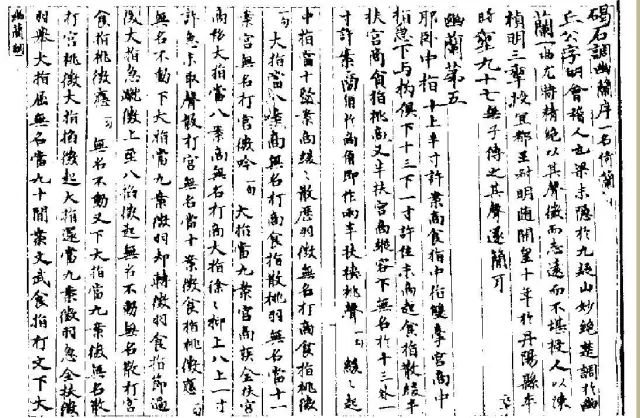 碣石調幽蘭序一名倚蘭
丘公字明會稽人也梁末隱於九疑山妙絕楚調於幽
蘭一曲尤特精絕以其聲微而志遠而不堪授人以陳
禎明三年授宜都王叔明隨開皇十年於丹陽縣卒
時年九十七無子傳之其聲遂簡耳
幽蘭第五
耶臥中指十上半寸許案商食指中指雙牽宮商中
指急下与构俱下十三下一寸許住末商起食指散緩半
扶宮商食指挑商又半扶宮商縱容下無名於十三外一
寸許案商角於商角即作兩半扶挾挑聲一句緩々起
中指當十案商緩々散歷羽徵無名打商食指挑徵
一句大指當八案商無名打商食指散挑羽無名當十一
案宮無名打宮徵吟一句大指當九案宮商疾全扶宮
商移大指當八案商無名打商大指徐々抑上八上一寸
許急末取聲散打宮無名當十案徵食指挑徵應
無名不動下大指當九案徵羽却轉徵羽食指節過
徵大指急蹴徵上至八拍徵起無名不動無名散打宮
食指挑徵應一句無名不動又下大指當九案徵無名散
打宮挑徵大指抑徵起大指還當九案徵羽急全扶徵
羽舉大指屈無名當九十間案文武食指打文下大